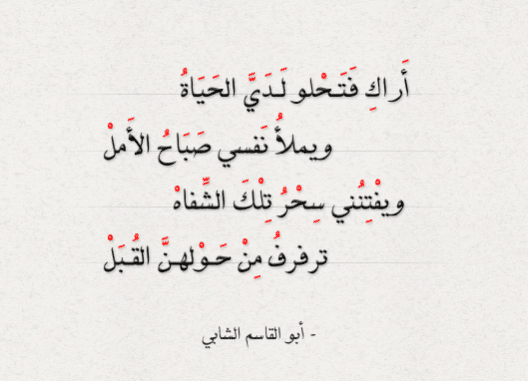 أَراكِ فَتَحْلو لَدَيَّ الحَيَاةُ
ويملأُ نَفسي صَبَاحُ الأَملْ
ويفْتِنُني سِحْرُ تِلْكَ الشِّفاهْ
ترفرفُ مِنْ حَوْلهنَّ القُبَلْ
- أبو القاسم الشابي